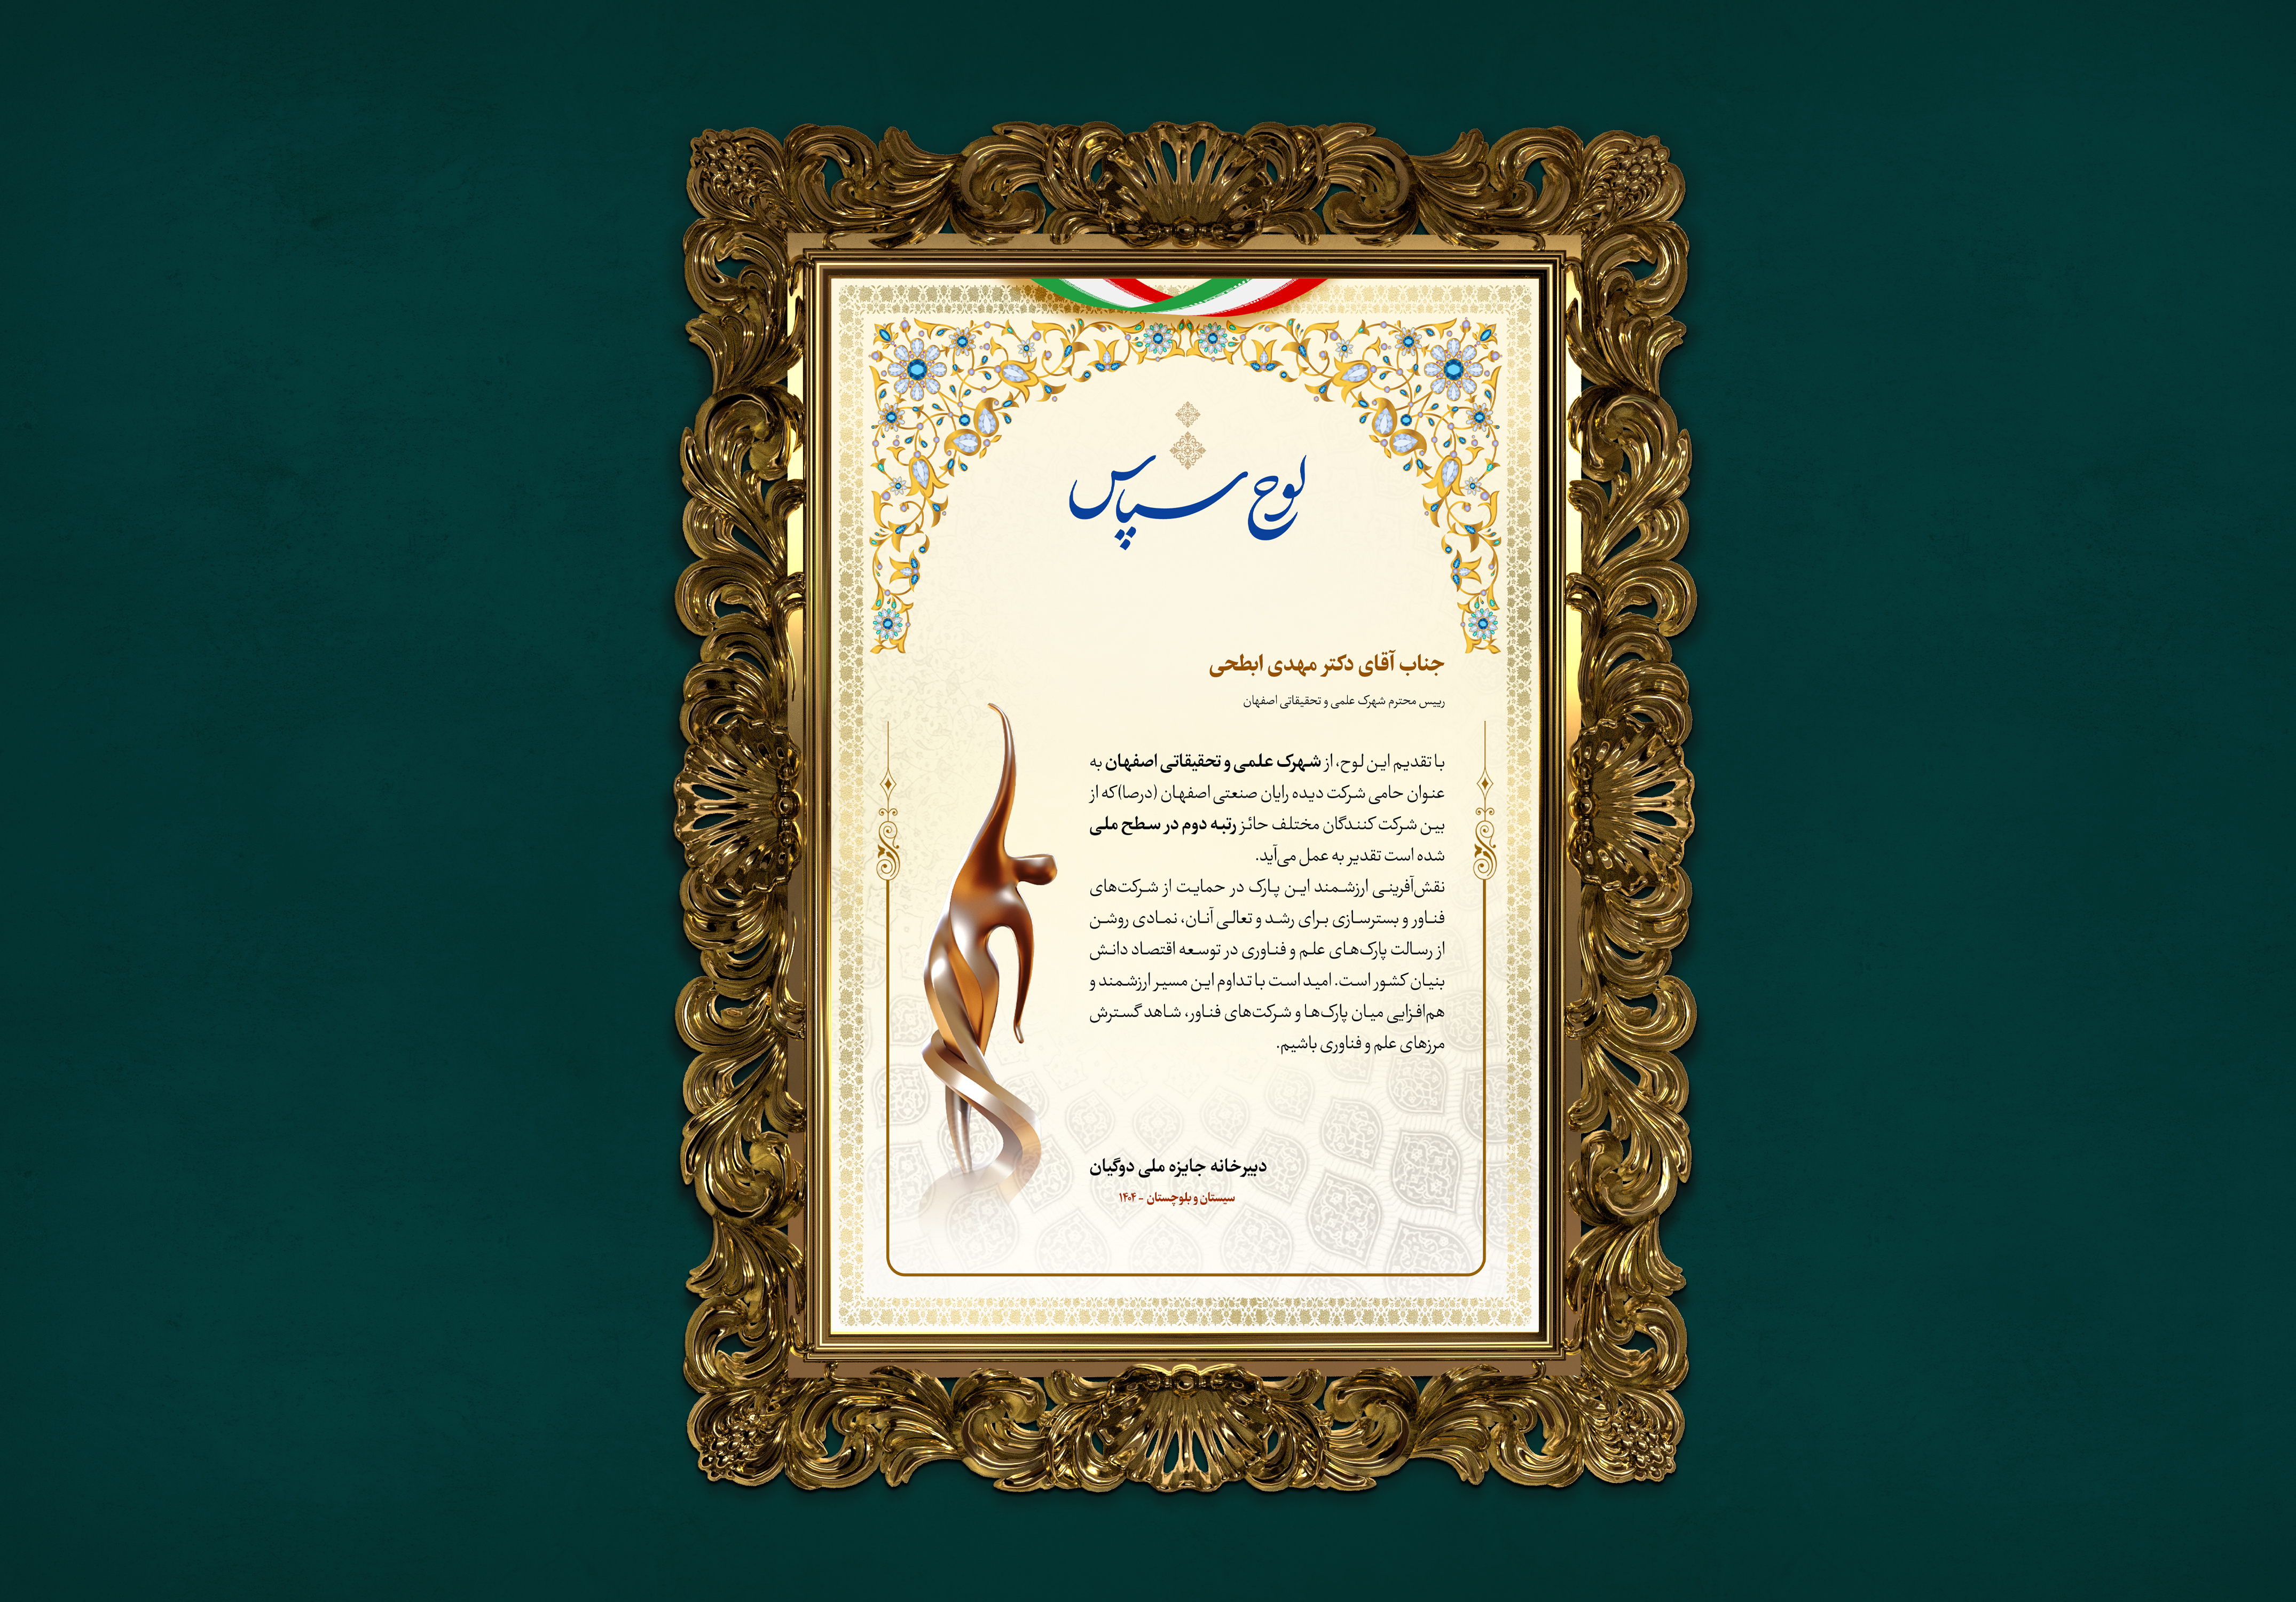 لوح سپاس
جناب آقای دکتر مهدی ابطحی
رییس محترم شهرک علمی و تحقیقاتی اصفهان
با تقدیم این لوح، از شهرک علمی و تحقیقاتی اصفهان به
عنوان حامی شرکت دیده رایان صنعتی اصفهان (درصا)که از
بین شرکت کنندگان مختلف حائز رتبه دوم در سطح ملی
شده است تقدیر به عمل می‌آید.
نقش‌آفرینی ارزشمند این پارک در حمایت از شرکت‌های
فناور و بسترسازی برای رشد و تعالی آنان، نمادی روشن
از رسالت پارک‌های علم و فناوری در توسعه اقتصاد دانش
بنیان کشور است. امید است با تداوم این مسیر ارزشمند و
هم‌افزایی میان پارک‌ها و شرکت‌های فناور، شاهد گسترش
مرزهای علم و فناوری باشیم.
دبیرخانه جایزه ملی دوگیان
سیستان و بلوچستان - ۱۴۰۴